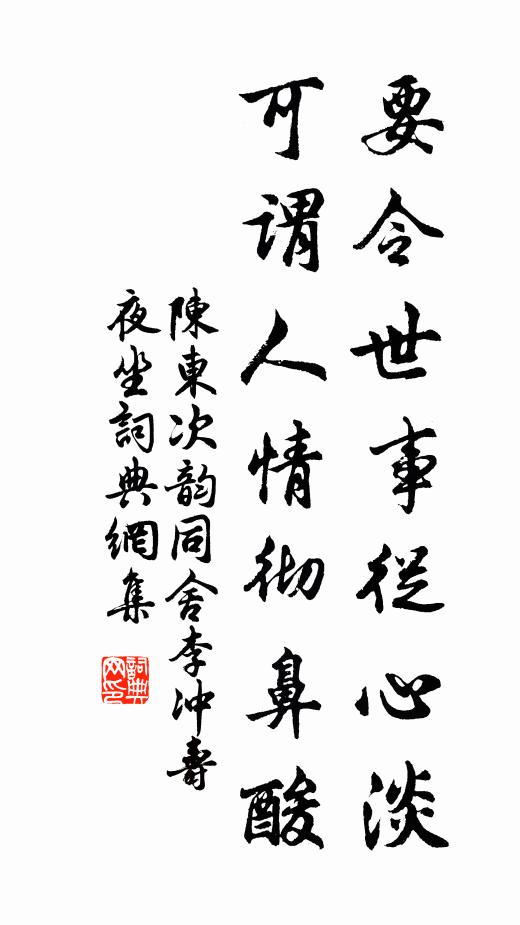 要令世事從心淡
可謂人情彻鼻酸
陳東次韵同舍李冲壽
夜坐詞典網集
詞典
网印